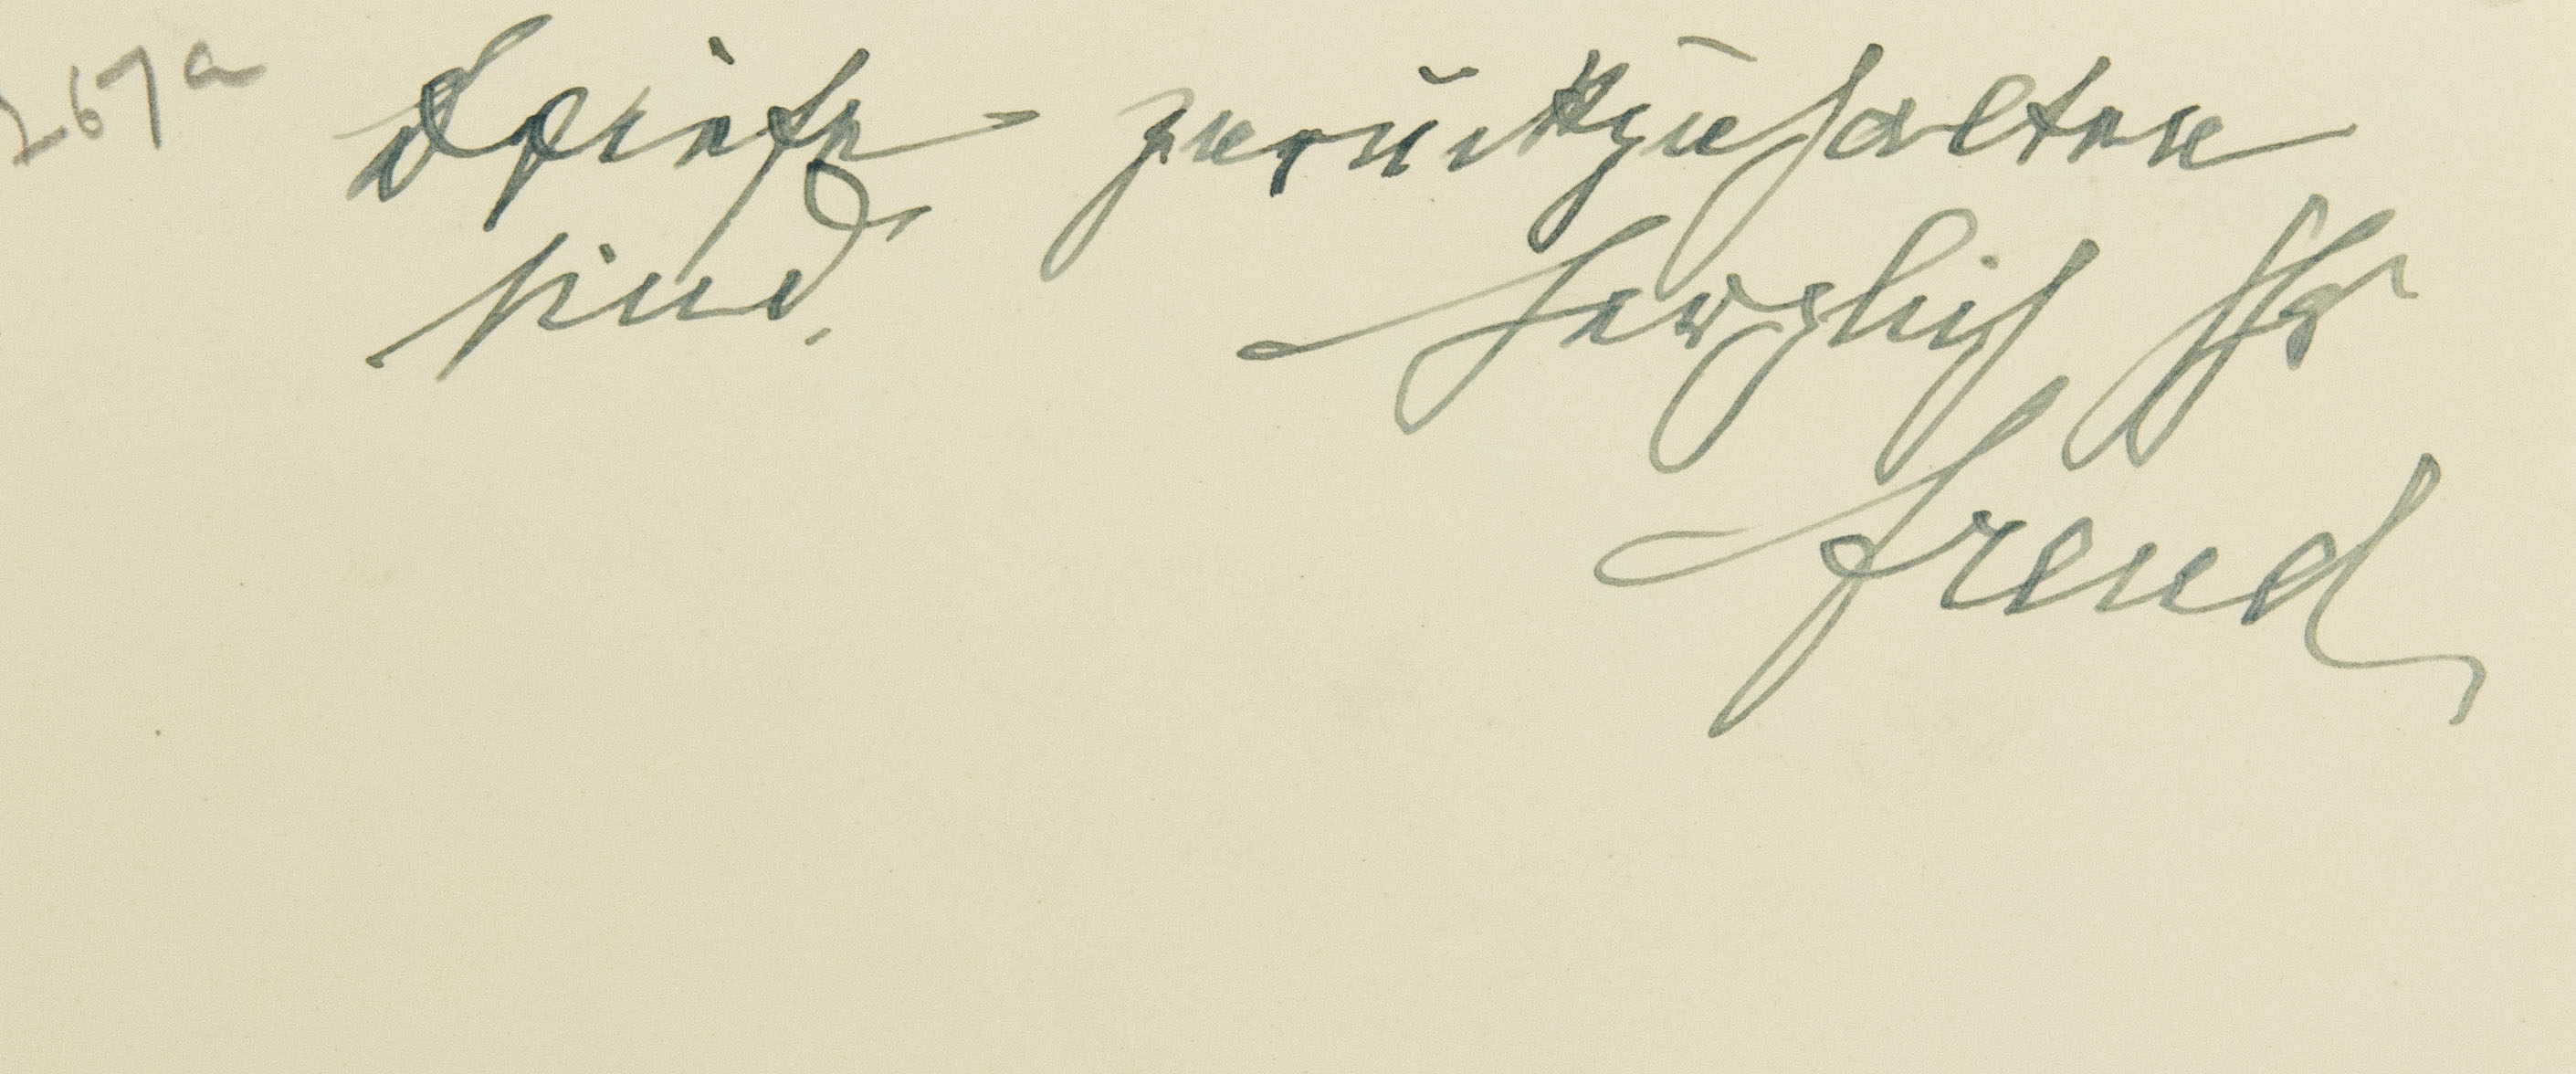 267a
Briefe zurückzuhalten
sind.
Herzlich Ihr
Freud